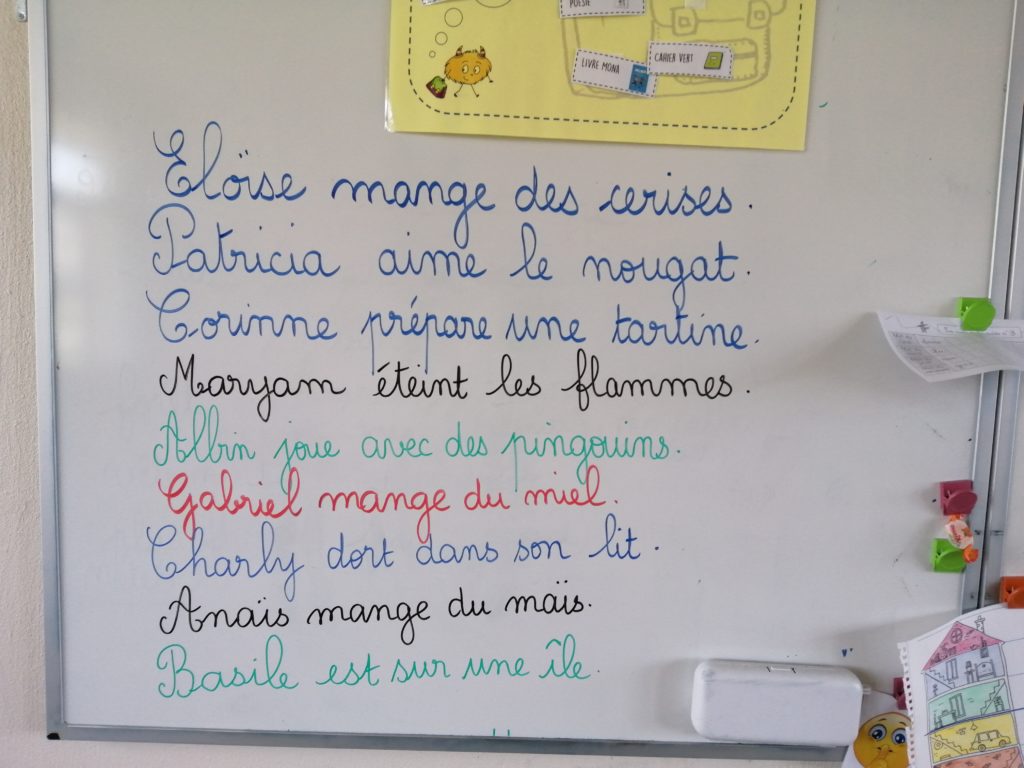 POÉSIE
LIVRE MONA
CAHIER VERT
Eloïse mange des cerises.
Patricia aime le nougat.
Corinne prépare une tartine.
Maryam éteint les flammes.
Albin joue avec des pingouins.
Gabriel mange du miel.
Charly dort dans son lit.
Anaïs mange du maïs.
Basile est sur une île.